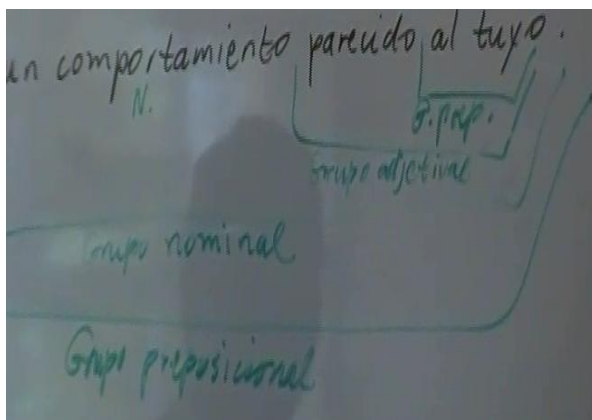 un comportamiento parecido al tuyo.
N.
G. prep.
Grupo adjetival
Grupo nominal
Grupo preposicional